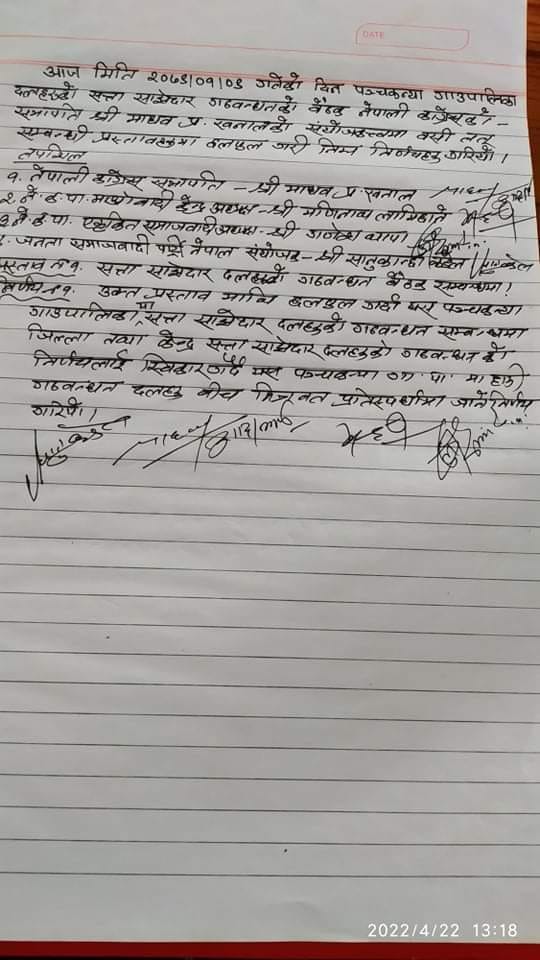 DATE
आज मिति २०७९/०१/०९ गतेको दिन पञ्चकन्या गाउपालिका
दलहरुको सत्ता साझेदार गठबन्धनको बैठक नेपाली काँग्रेसको -
सभापति श्री माधव प्र. खनालको संयोजकत्वमा बसी तत्
सम्बन्धी प्रस्तावहरुमा छलफल गरी निम्न निर्णयहरु गरियो।
तपसिल
१. नेपाली काँग्रेस सभापति - श्री माधव प्र. खनाल
२. ने. क. पा. माओवादी केन्द्र अध्यक्ष - श्री मणिनाथ लामिछाने
३. ने. क. पा. एकिकृत समाजवादी अध्यक्ष - श्री गणेश थापा
४. जनता समाजवादी पार्टी नेपाल संयोजक - श्री
प्रस्ताव नं १. सत्ता साझेदार दलहरुको गठबन्धन बैठक सम्बन्धमा।
निर्णय नं १. उक्त प्रस्ताव माथि छलफल गर्दा यस पञ्चकन्या
गाउपालिकामा सत्ता साझेदार दलहरुको गठबन्धन सम्बन्धमा
जिल्ला तथा केन्द्र सत्ता साझेदार दलहरुको गठबन्धन को
निर्णयलाई स्विकार गर्दै यस पञ्चकन्या गा. पा. मा हामी
गठबन्धन दलहरु बीच मित्रवत प्रतिस्पर्धामा जाने निर्णय
गरियो।
2022/4/22 13:18